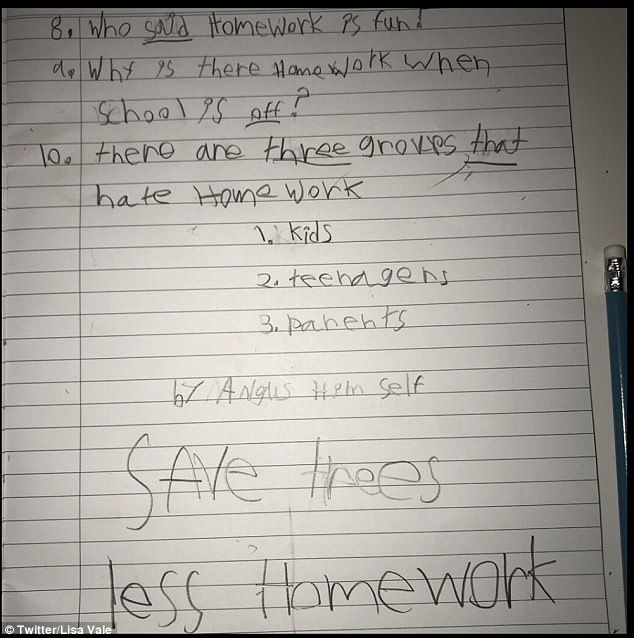 8. Who said HomeWork is fun!
9. Why is there HomeWork when
school is off?
10. there are three groups that
hate HomeWork
1. kids
2. teenagers
3. parents
by Angus Him self
SAVe trees
less HomeWork
© Twitter/Lisa Vale